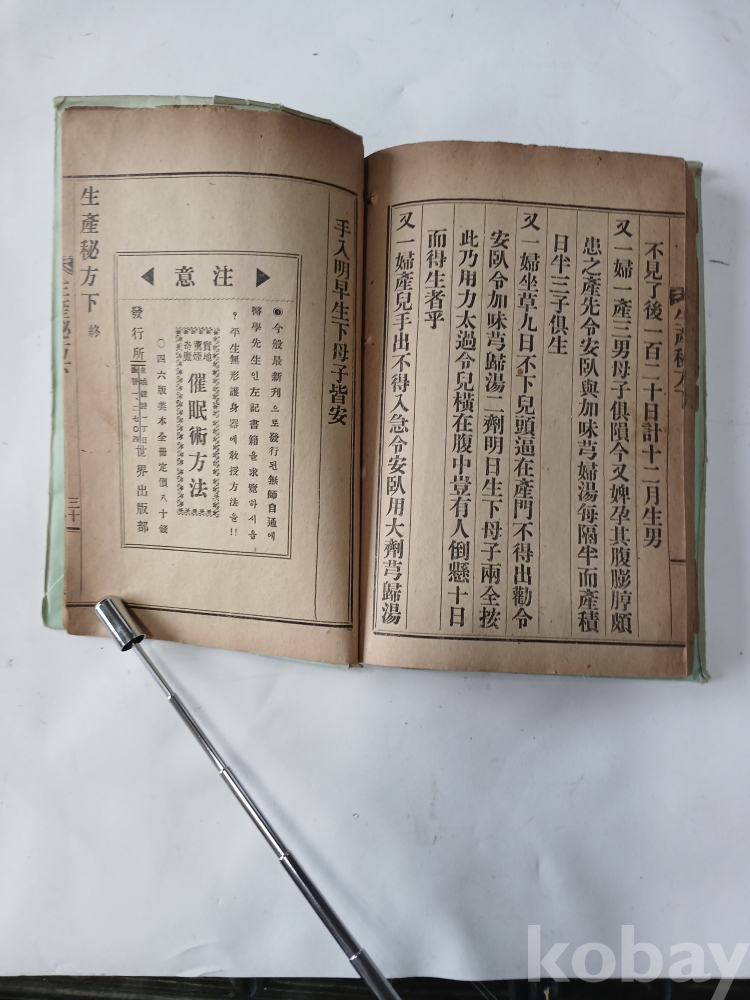 不見了後一百二十日計十二月生男
又一婦一產三男母子俱隕今又婢孕其腹膨脝頗
患之產先令安臥與加味芎歸湯每隔半而產積
日半三子俱生
又一婦坐草九日不下兒頭逼在產門不得出勸令
安臥令加味芎歸湯二劑明日生下母子兩全按
此乃用力太過令兒橫在腹中豈有人倒懸十日
而得生者乎
又一婦產兒手出不得入急令安臥用大劑芎歸湯
手入明早生下母子皆安
注意
◉今般最新刊으로發行된無師自通에
醫學先生인左記書籍을求覽하시옵
平生無形護身器에敎授方法을!!
實地
奇靈
催眠術方法
○四六版美本全冊定價八十錢
發行所
世界出版部
生產秘方下 終
三十
kobay